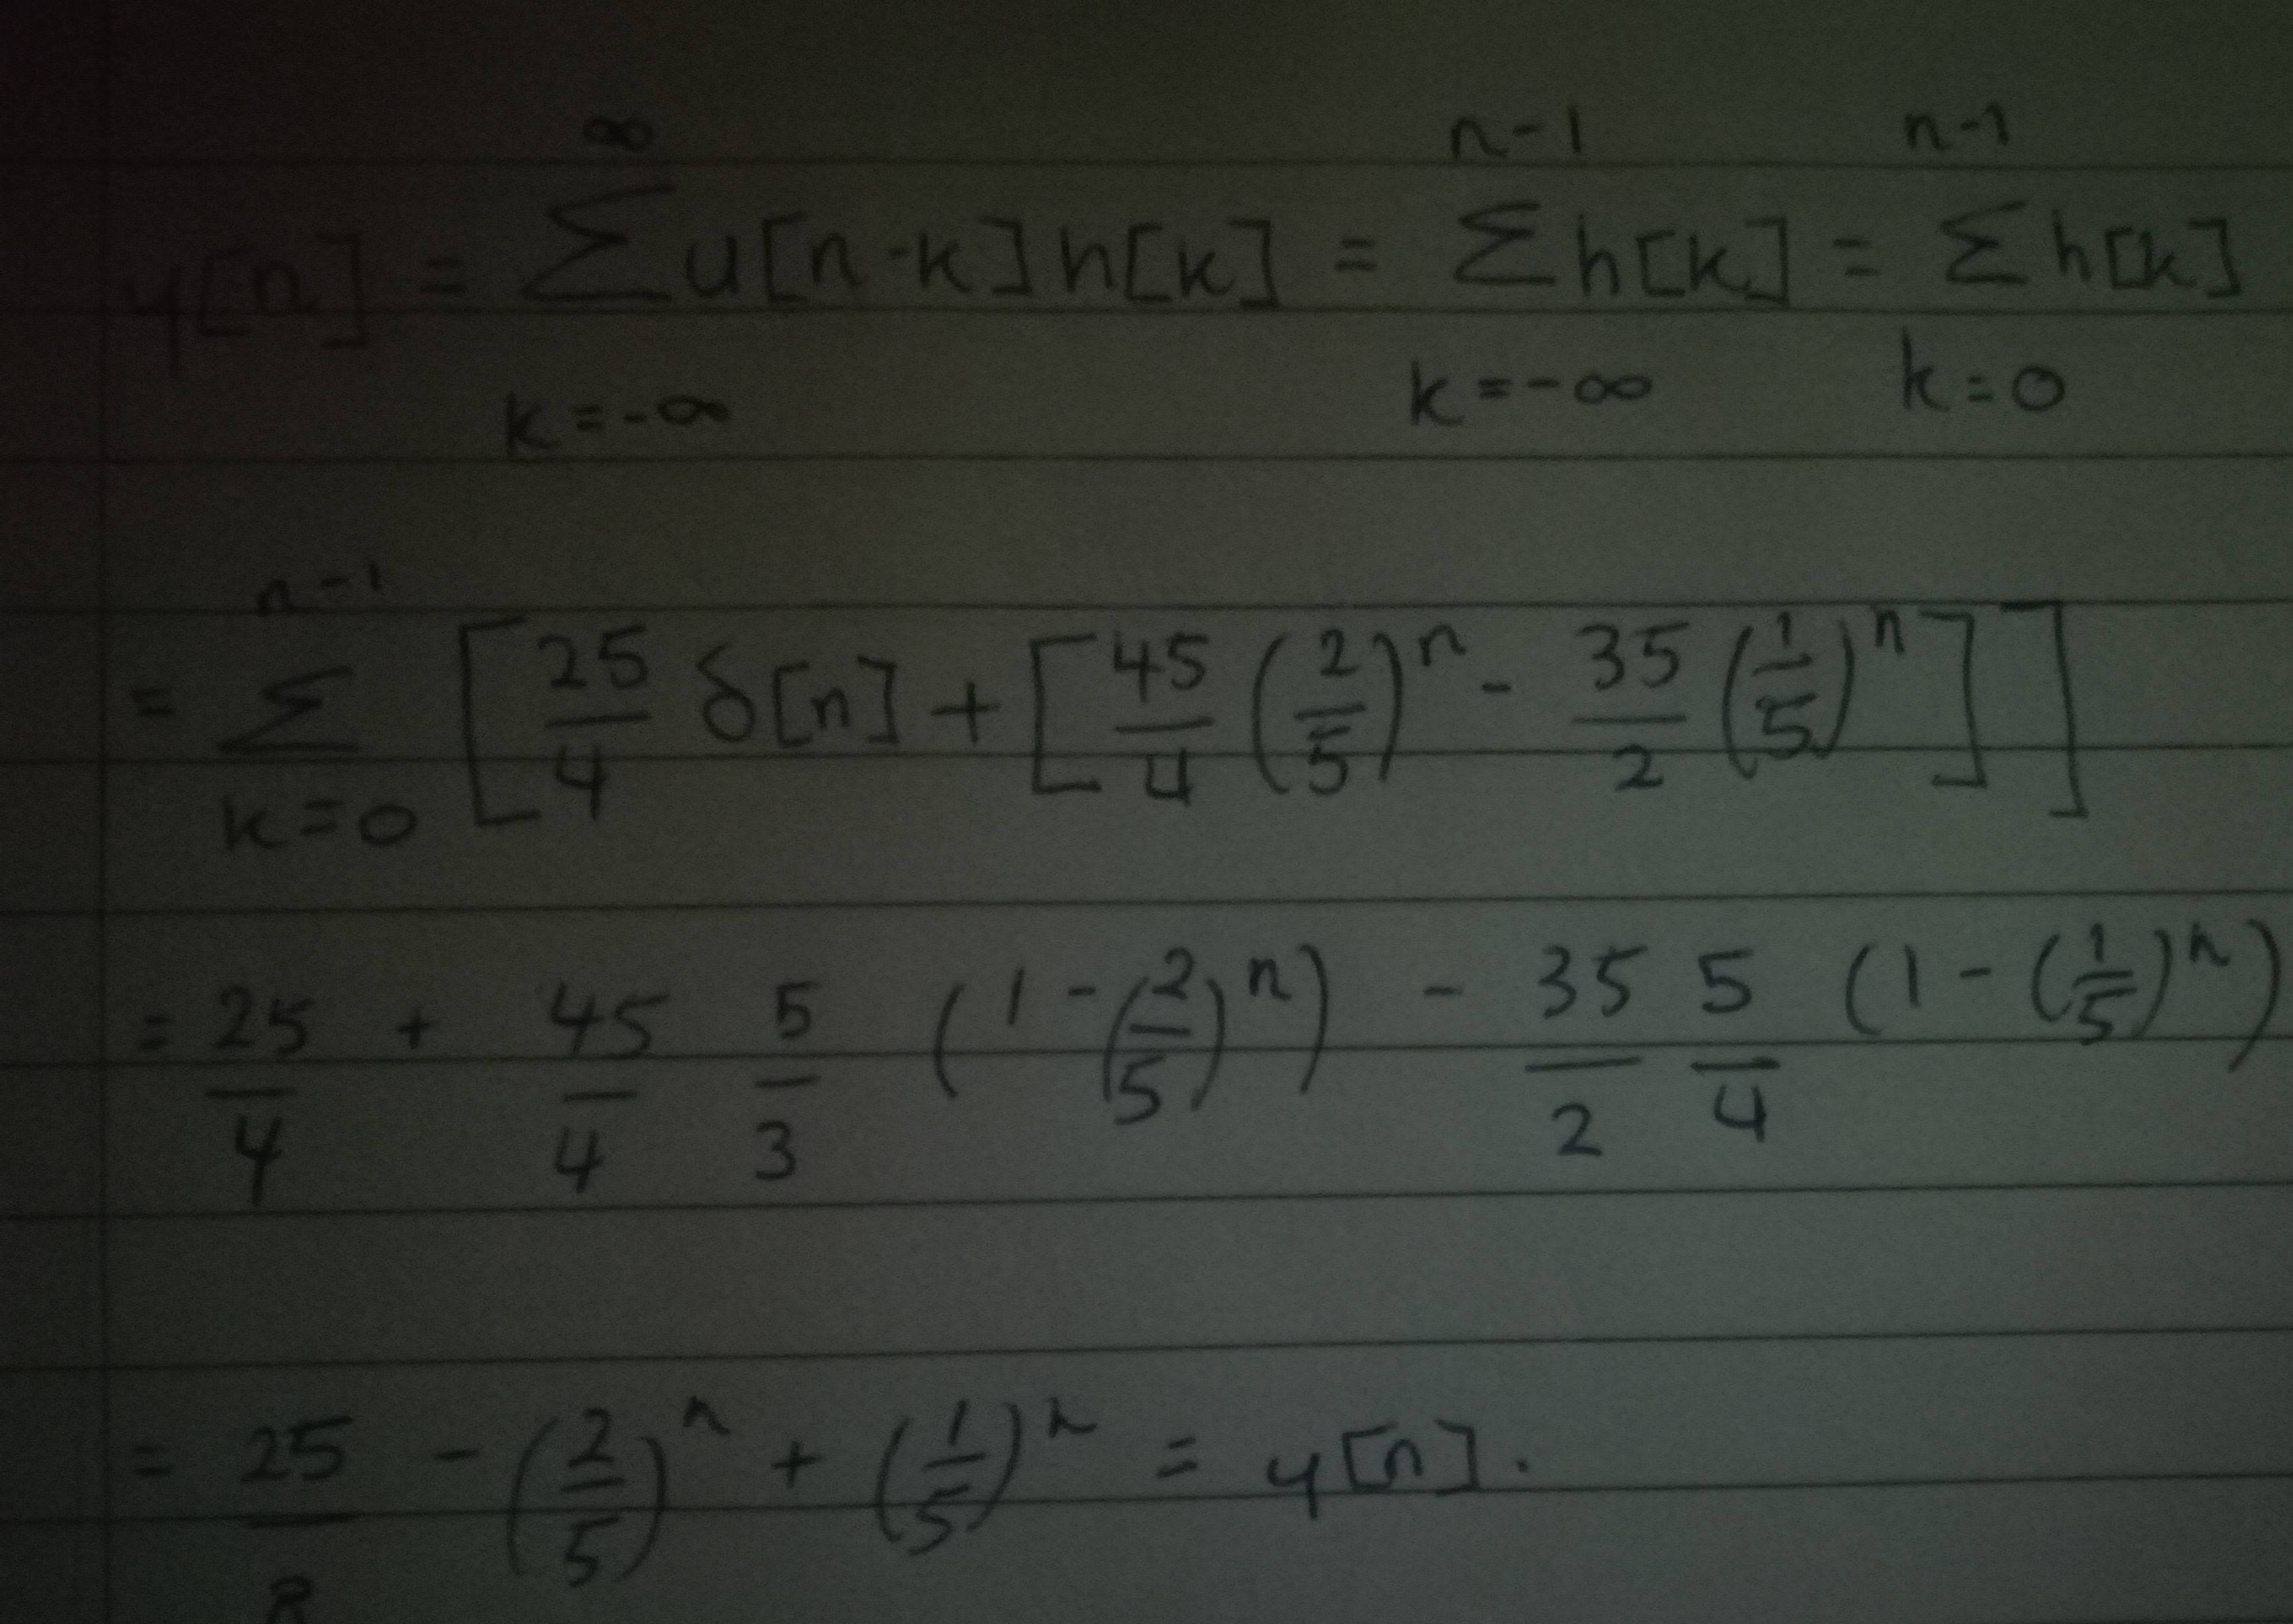 y[n] = ∞ Σ k=-∞ u[n-k]h[k] = n-1 Σ k=-∞ h[k] = n-1 Σ k=0 h[k]
= n-1 Σ k=0 [25/4 δ[n] + [45/4 (2/5)^n - 35/2 (1/5)^n]]
= 25/4 + 45/4 5/3 (1-(2/5)^n) - 35/2 5/4 (1-(1/5)^n)
= 25/8 - (2/5)^n + (1/5)^n = y[n].